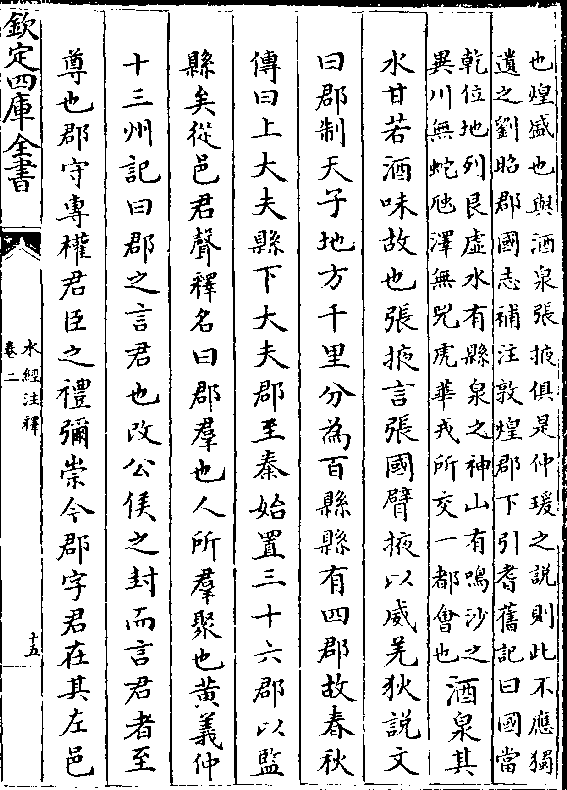 也煌盛也與酒泉張掖俱是仲瑗之説則此不應獨
遺之劉昭郡國志補注敦煌郡下引耆舊記曰國當
乾位地列艮虚水有縣泉之神山有鳴沙之
異川無蛇虺澤無兕虎華戎所交一都㑹也酒泉其
水甘若酒味故也張掖言張國臂掖以威羌狄説文
曰郡制天子地方千里分為百縣縣有四郡故春秋
傳曰上大夫縣下大夫郡至秦始置三十六郡以監
縣矣從邑君聲釋名曰郡羣也人所羣聚也黄義仲
十三州記曰郡之言君也改公侯之封而言君者至
尊也郡守專權君臣之禮彌崇今郡字君在其左邑
欽定四庫全書
水經注釋
卷二
十五